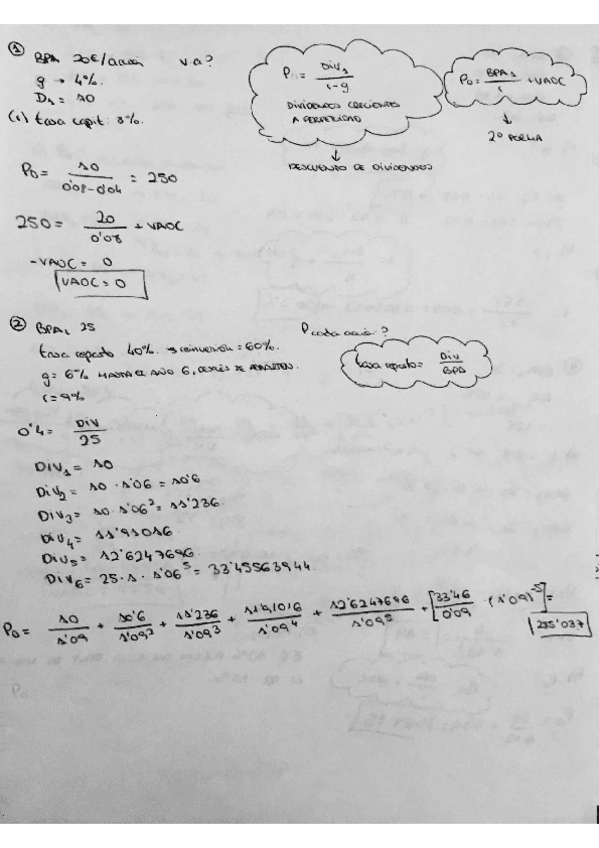 ① BPA 20€/acción V.A?
g → 4%.
D₁ = 10
(i) tasa capit: 8%.
P₀ = DIV₁ / i-g
DIVIDENDOS CRECIENTES
A PERPETUIDAD
↓
DESCUENTO DE DIVIDENDOS
P₀ = BPA₁ / i + VAOC
↓
2º FORMA
P₀ = 10 / 0'08-0'04 = 250
250 = 20 / 0'08 + VAOC
-VAOC = 0
VAOC = 0
② BPA₁ 25 P cada acció?
tasa reparto 40%. → reinversión = 60%.
g = 6% HASTA EL AÑO 6, DESPUÉS SE
i = 9%
tasa reparto = Div / BPA
0'4 = DIV / 25
DIV₁ = 10
DIV₂ = 10 · 1'06 = 10'6
DIV₃ = 10 · 1'06² = 11'236.
DIV₄ = 11'91016
DIV₅ = 12'6247696.
DIV₆ = 25 · 1 · 1'06⁵ = 33'45563944
P₀ = 10 / 1'09 + 10'6 / 1'09² + 11'236 / 1'09³ + 11'91016 / 1'09⁴ + 12'6247696 / 1'09⁵ + [33'46 / 0'09 · (1'09)⁻⁵] =